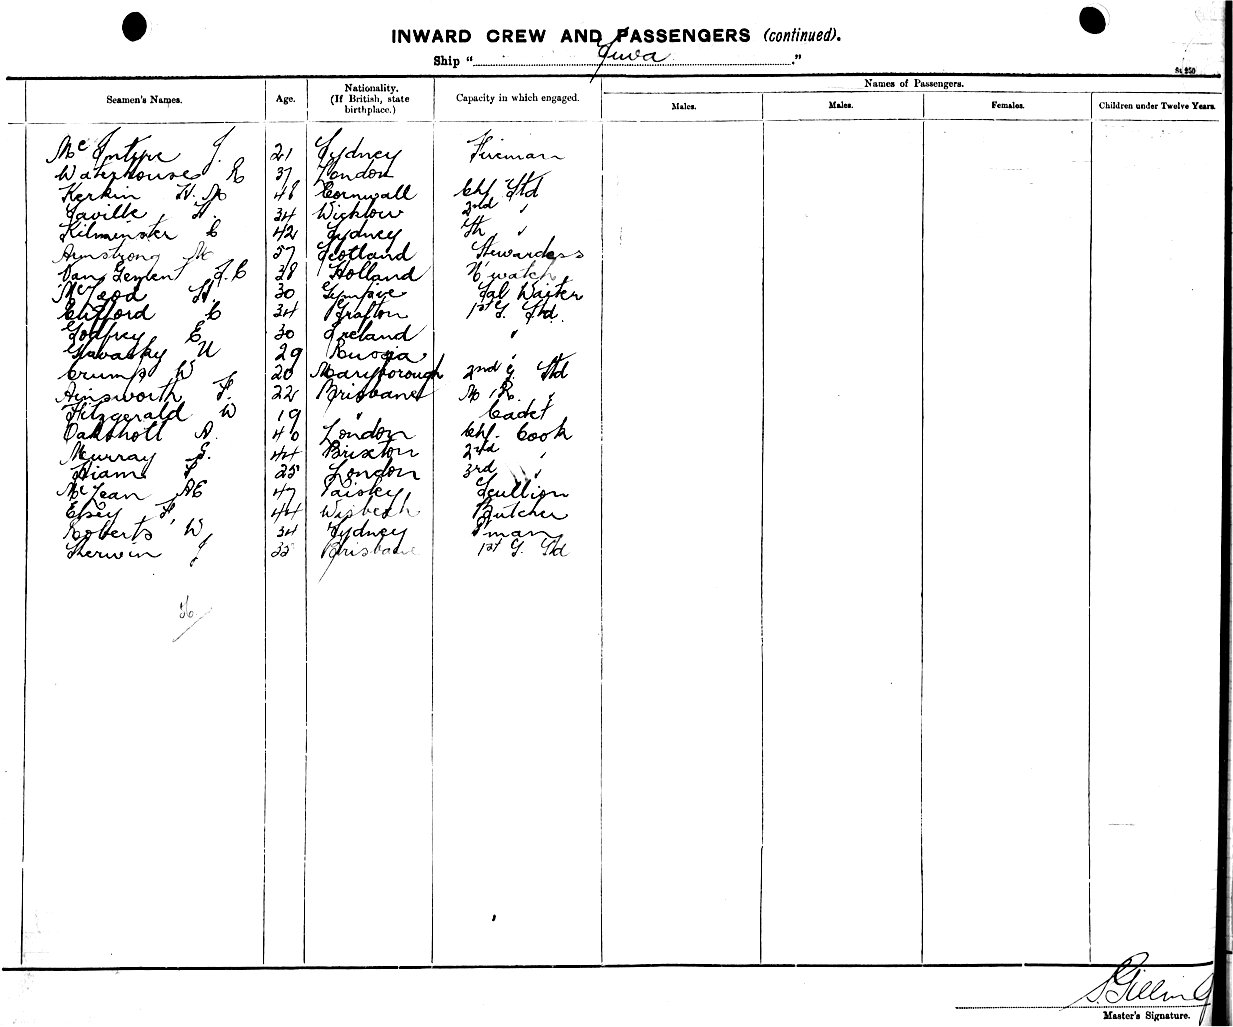 INWARD CREW AND PASSENGERS (continued).
Ship "Suva."
Seamen's Names. Age. Nationality. (If British, state birthplace.) Capacity in which engaged. Names of Passengers.
Males. Males. Females. Children under Twelve Years.
McIntyre J. 21 Sydney Fireman
Waterhouse R 37 London
Kerkin H. 48 Cornwall Chf Std
Saville H. 34 Wicklow 2nd "
Kilminster C 42 Sydney "
Armstrong M 57 Scotland Stewardess
Van 38 Holland N' watch
McLeod H. 30 Gympie Sal Waiter
Clifford C 34 Grafton 1st G. Std.
Godfrey E 30 Ireland "
U 29 Russia "
Crump W 20 Maryborough 2nd G. Std
Ainsworth F. 22 Brisbane M. R. "
Fitzgerald W 19 " Cadet
Oakshott A. 46 London Chf. Cook
Murray S. 44 Brixton 2nd "
Hiam F 25 London 3rd "
McLean AE 47 Paisley Scullion
Elsey F. 44 Wisbech Butcher
Roberts W 34 Sydney F'man
Sherwin J 35 Brisbane 1st G. Std
Master's Signature.